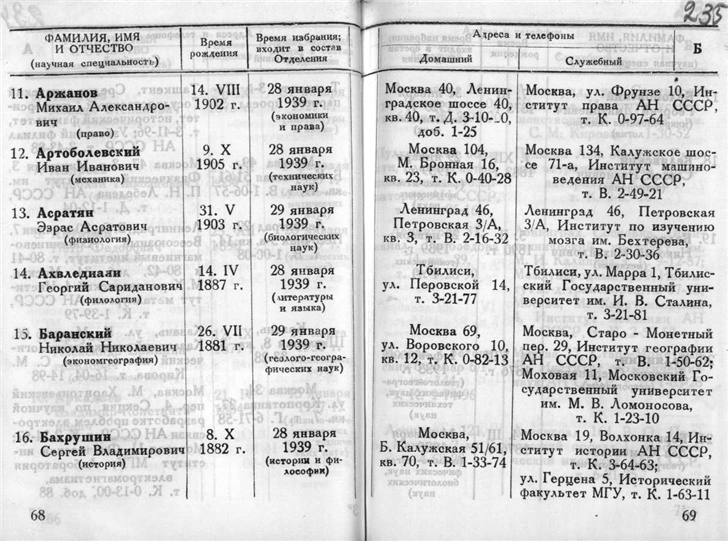 238
ФАМИЛИЯ, ИМЯ
И ОТЧЕСТВО
(научная специальность)
Время
рождения
Время избрания;
входит в состав
Отделения
11. Аржанов
Михаил Александро-
вич
(право)
14. VIII
1902 г.
28 января
1939 г.
(экономики
и права)
12. Артоболевский
Иван Иванович
(механика)
9. X
1905 г.
28 января
1939 г.
(технических
наук)
13. Асратян
Эзрас Асратович
(физиология)
31. V
1903 г.
29 января
1939 г.
(биологических
наук)
14. Ахвледиани
Георгий Сариданович
(филология)
14. IV
1887 г.
28 января
1939 г.
(литературы
и языка)
15. Баранский
Николай Николаевич
(экономгеография)
26. VII
1881 г.
29 января
1939 г.
(геолого-геогра-
фических наук)
16. Бахрушин
Сергей Владимирович
(история)
8. X
1882 г.
28 января
1939 г.
(истории и фи-
лософии)
68
Адреса и телефоны
Б
Домашний
Служебный
Москва 40, Ленин-
градское шоссе 40,
кв. 40, т. Д.
доб. 1-25
Москва, ул. Фрунзе 10, Ин-
ститут права АН СССР,
т. К. 0-97-64
Москва 104,
М. Бронная 16,
кв. 23, т. К 0-40-28
Москва 134, Калужское шос-
се 71-а, Институт машино-
ведения АН СССР,
т. В. 2-49-21
Ленинград 46,
Петровская 3/А,
кв. 3, т. В. 2-16-32
Ленинград 46, Петровская
3/А, Институт по изучению
мозга им. Бехтерева,
т. В. 2-30-36
Тбилиси,
ул. Перовской 14,
т. 3-21-77
Тбилиси, ул. Марра 1, Тбилис-
ский Государственный уни-
верситет им. И. В. Сталина,
т. 3-21-81
Москва 69,
ул. Воровского 10,
кв. 12, т. К. 0-82-13
Москва, Старо - Монетный
пер. 29, Институт географии
АН СССР, т. В. 1-50-62;
Моховая 11, Московский Го-
сударственный университет
им. М. В. Ломоносова,
т. К. 1-23-10
Москва,
Б. Калужская 51/61,
кв. 70, т. В. 1-33-74
Москва 19, Волхонка 14, Ин-
ститут истории АН СССР,
т. К. 3-64-63;
ул. Герцена 5, Исторический
факультет МГУ, т. К. 1-63-11
69